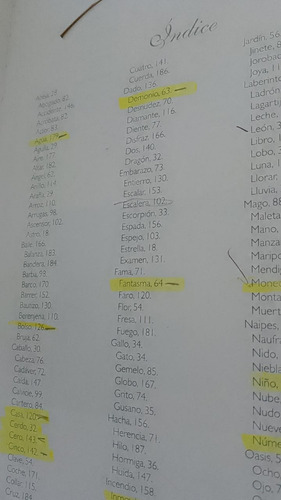 Índice
Abeja, 59.
Abogado, 82.
Academia, 146.
Acróbata, 82.
Águila, 29.
Aire, 177.
Ajedrez, 182.
Ángel, 62.
Anillo, 114.
Araña, 24.
Arroz, 110.
Arrugas, 98.
Ascensor, 102.
Baile, 166.
Balanza, 183.
Bandera, 184.
Barba, 93.
Barco, 170.
Bebé, 152.
Bautizo, 130.
Berenjena, 110.
Bolso, 126.
Bruja, 62.
Caballo, 30.
Cabeza, 76.
Cadáver, 72.
Caída, 147.
Caníbal, 99.
Cartero, 84.
Casa, 120.
Cerdo, 32.
Cero, 143.
Cinco, 142.
Clave, 54.
Coche, 171.
Collar, 115.
Cruz, 184.
Cuatro, 141.
Cuerda, 186.
Dado, 136.
Demonio, 63.
Desnudez, 70.
Diamante, 116.
Diente, 77.
Disfraz, 166.
Dos, 140.
Dragón, 32.
Embarazo, 73.
Entierro, 130.
Escalar, 153.
Escalera, 102.
Escorpión, 33.
Espada, 156.
Espejo, 103.
Estrella, 18.
Examen, 131.
Fama, 71.
Fantasma, 64.
Faro, 120.
Flor, 54.
Fresa, 111.
Fuego, 181.
Gallo, 34.
Gato, 34.
Gemelo, 85.
Globo, 167.
Grito, 74.
Gusano, 35.
Hacha, 156.
Herencia, 71.
Hilo, 187.
Hormiga, 36.
Huida, 147.
Incendio, 158.
Jardín, 56
Jinete, 8
Joroba
Joya, 11
Laberint
Ladrón
Lagart
Leche,
León, 3
Libro, 1
Lobo, 3
Luna, 1
Llorar,
Lluvia,
Mago, 88
Maleta
Mano,
Manza
Maripo
Mendig
Moned
Monta
Muert
Naipes,
Naufra
Nido,
Niebla
Niño,
Nube,
Nudo
Nueve
Núme
Oasis, 5
Ocho,
Ojo, 7